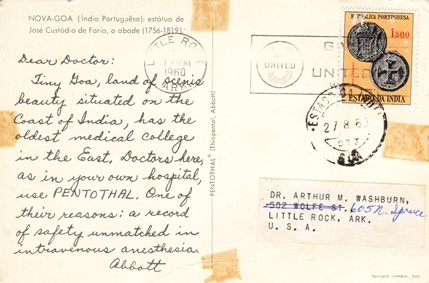 NOVA-GOA (Índia Portuguêsa): estátua de
José Custódio de Faria, o abade (1756-1819)
Dear Doctor:
Tiny Goa, land of scenic
beauty situated on the
Coast of India, has the
oldest medical college
in the East. Doctors here,
as in your own hospital,
use PENTOTHAL. One of
their reasons: a record
of safety unmatched in
intravenous anesthesia.
Abbott
PENTOTHAL® (Thiopental, Abbott)
LITTLE ROCK
1960
ARK.
UNITED
UNITED
REPÚBLICA PORTUGUESA
1$00
ESTADO DA ÍNDIA
ESTADO DA INDIA
27 8 60
GOA
DR. ARTHUR M. WASHBURN,
502 WOLFE ST. 605 N. Spruce
LITTLE ROCK, ARK.
U. S. A.